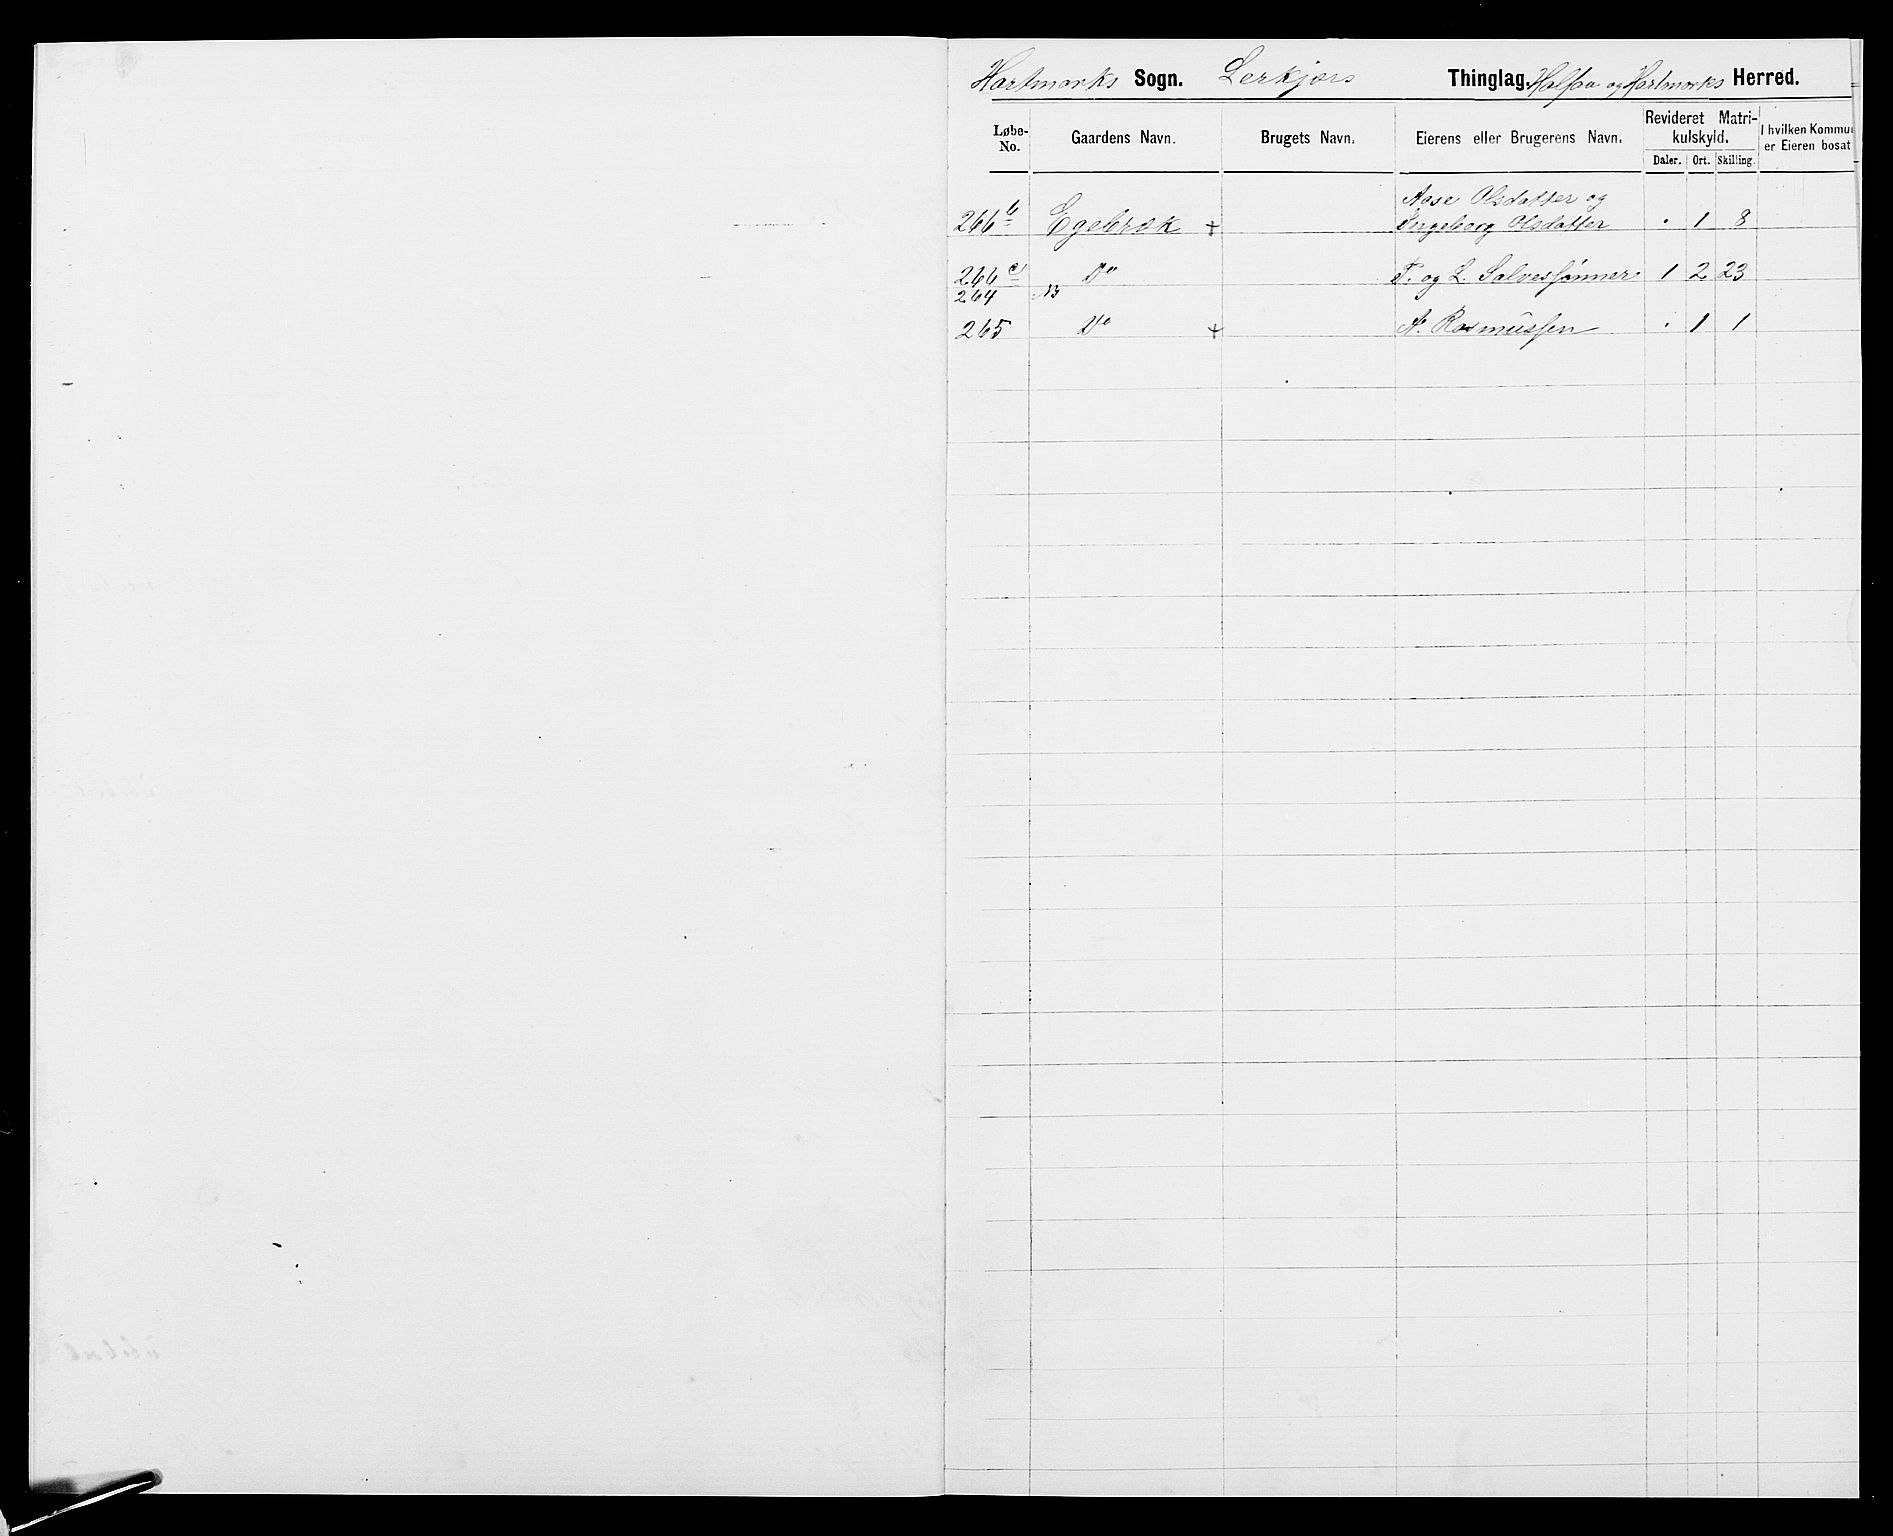 Hartmarks Sogn. Lerkjærs Thinglag. Halsaa og Hartmarks Herred.
Løbe-No. Gaardens Navn. Brugets Navn. Eierens eller Brugerens Navn. Revideret Matrikulskyld. I hvilken Kommu er Eieren bosat
Daler. Ort. Skilling.
Aase Olsdatter og
266 b Egebræk + Ingeborg Olsdatter . 1 8
266 c Do T. og L. Salvessønner 1 2 23
264
265 Do + A. Rasmussen . 1 1